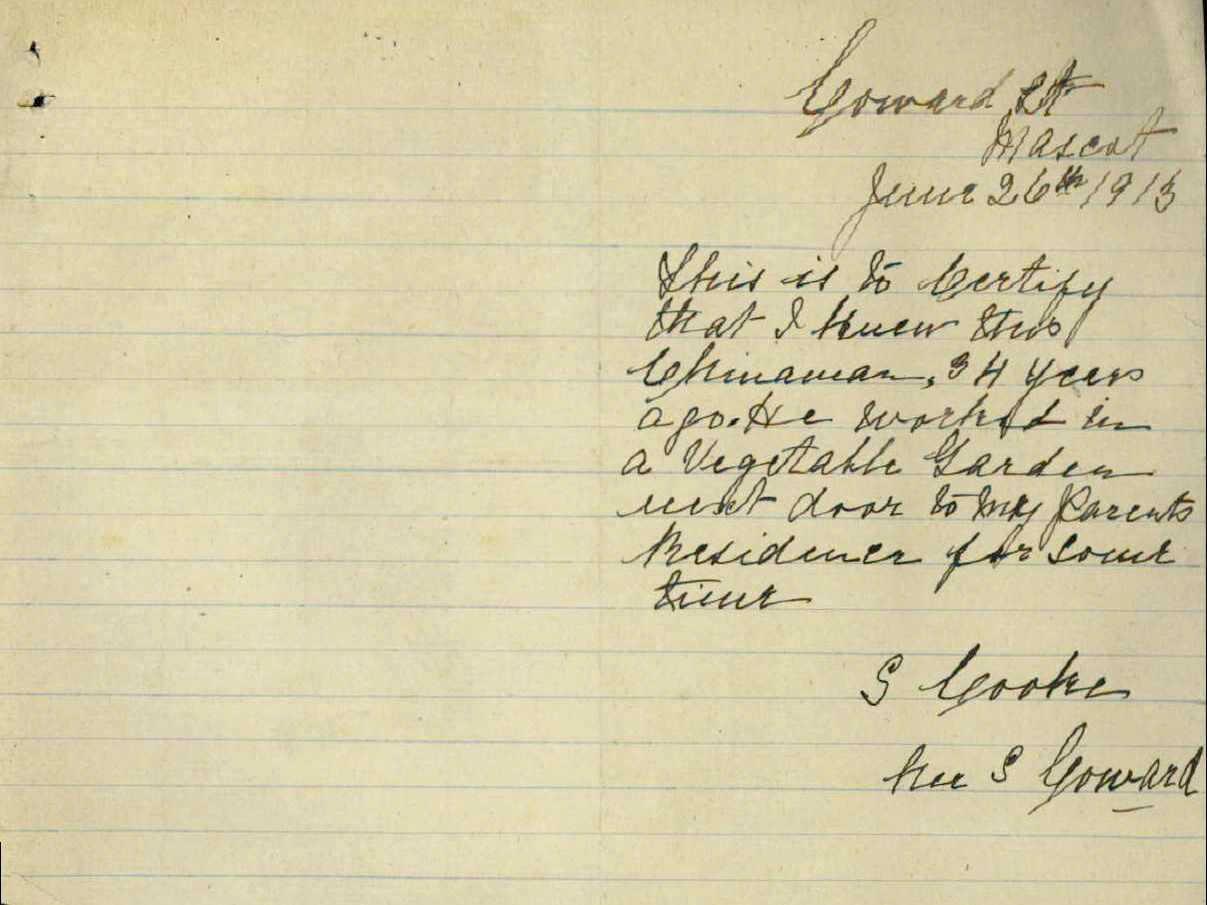 Coward St
Mascot
June 26th 1913
This is to Certify
that I knew this
Chinaman, 34 years
ago. He worked in
a Vegetable Garden
next door to my Parents
Residence for some
time
S Cooke
Nee S Coward